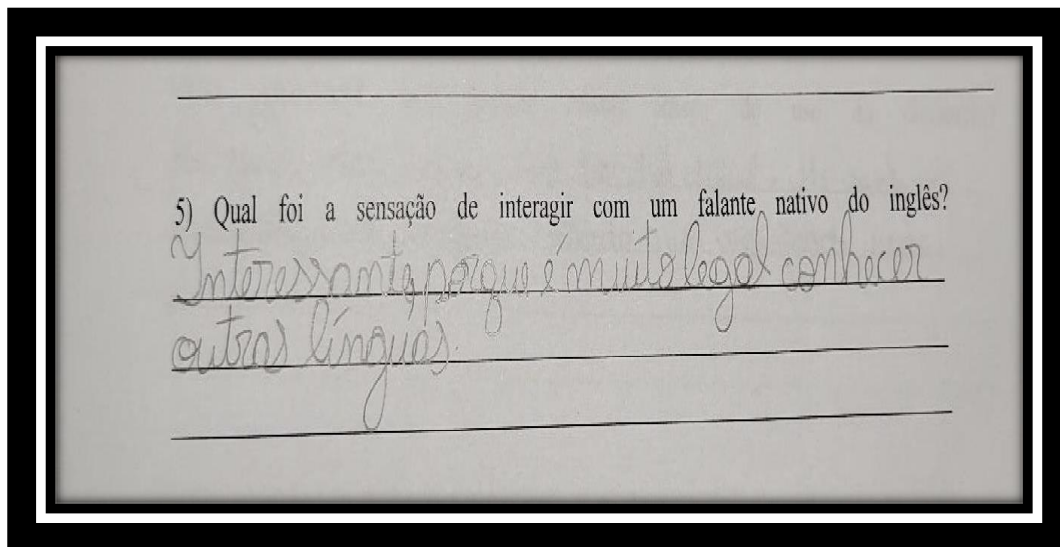 5) Qual foi a sensação de interagir com um falante nativo do inglês?
Interessante, porque é muito legal conhecer
outras línguas.